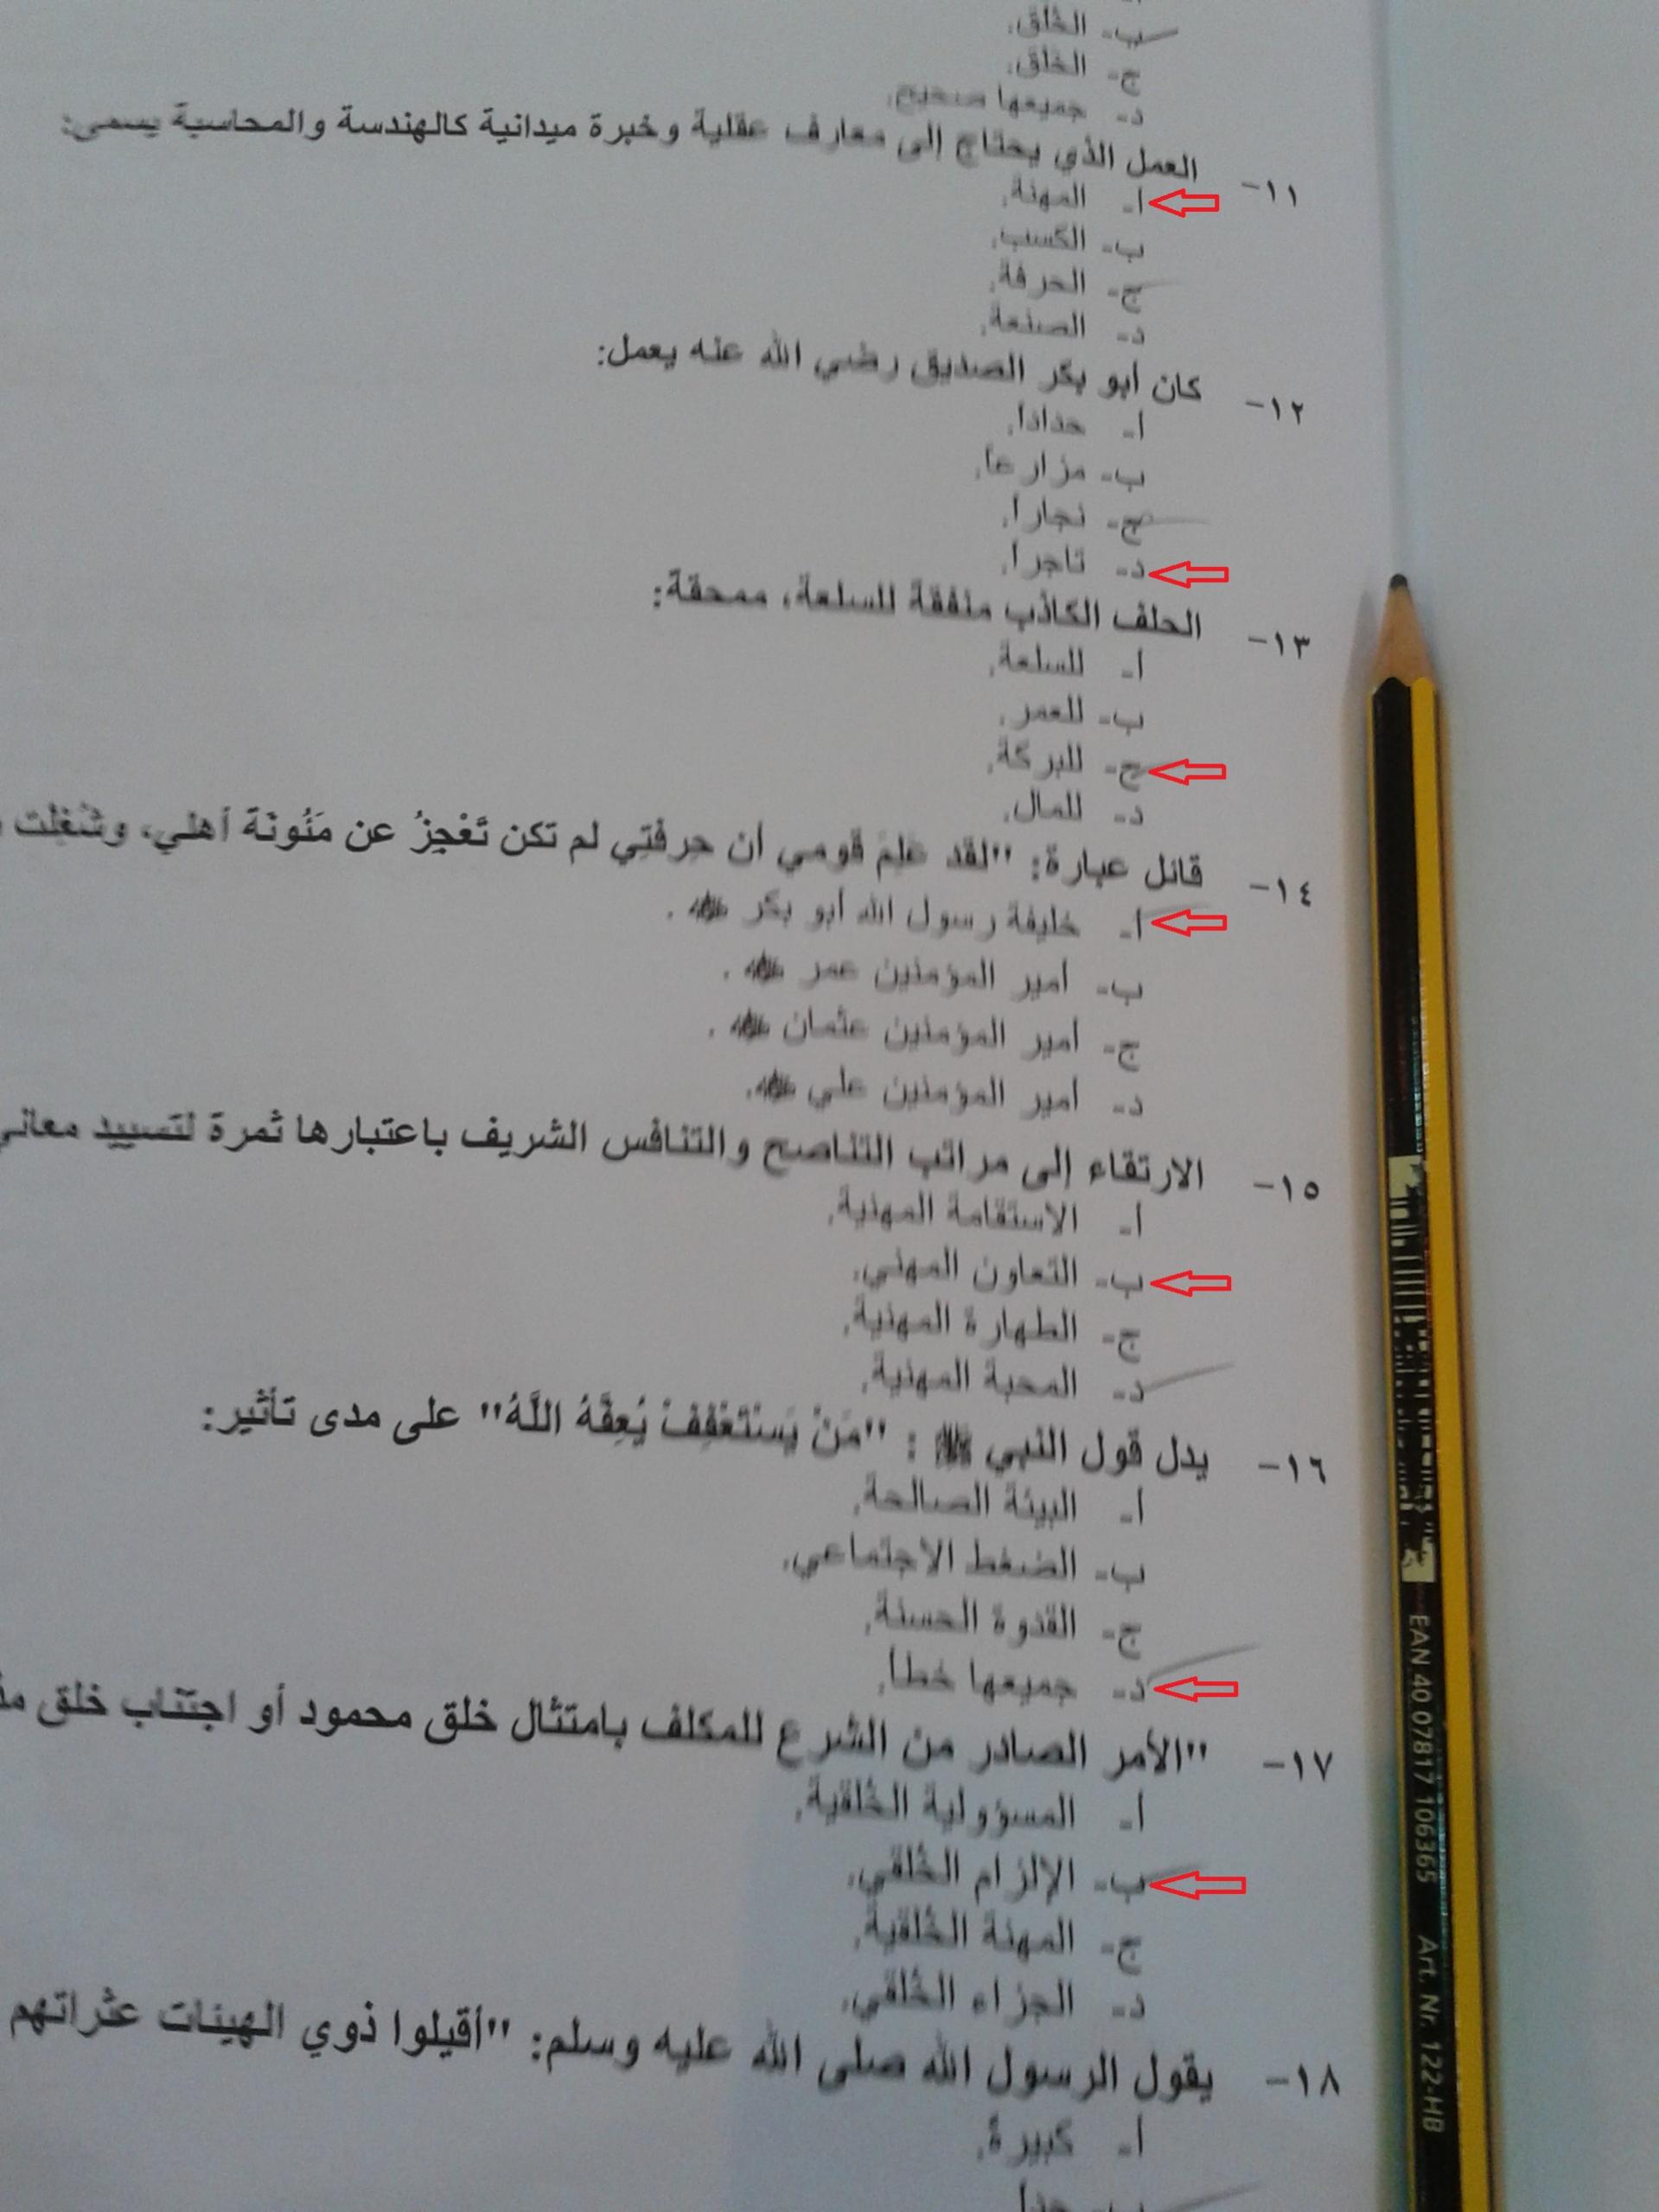 ب- الخُلق.
ج- الخلق.
د- جميعها صحيح.
١١- العمل الذي يحتاج إلى معارف عقلية وخبرة ميدانية كالهندسة والمحاسبة يسمى:
أ- المهنة.
ب- الكسب.
ج- الحرفة.
د- الصنعة.
١٢- كان أبو بكر الصديق رضي الله عنه يعمل:
أ- حدادا.
ب- مزارعاً.
ج- نجارا.
د- تاجرا.
١٣- الحلف الكاذب منفقة للسلعة، ممحقة:
أ- للسلعة.
ب- للعمر.
ج- للبركة.
د- للمال.
١٤- قائل عبارة: "لقد عَلِمَ قومي أن حرفتِي لم تكن تَعْجِزُ عن مَئُونَة أهلي، وشُغِلْت
أ- خليفة رسول الله أبو بكر ﷺ.
ب- أمير المؤمنين عمر.
ج- أمير المؤمنين عثمان.
د- أمير المؤمنين علي.
١٥- الارتقاء إلى مراتب التناصح والتنافس الشريف باعتبارها ثمرة لتسييد معاني
أ- الاستقامة المهنية.
ب- التعاون المهني.
ج- الطهارة المهنية.
د- المحبة المهنية.
١٦- يدل قول النبي ﷺ: "مَنْ يَسْتَعْفِفْ يُعِفَّهُ اللَّهُ" على مدى تأثير:
أ- البيئة الصالحة.
ب- الضغط الاجتماعي.
ج- القدوة الحسنة.
د- جميعها خطأ.
١٧- "الأمر الصادر من الشرع للمكلف بامتثال خلق محمود أو اجتناب خلق
أ- المسؤولية الخُلقية.
ب- الإلزام الخُلقي.
ج- المهنة الخُلقية.
د- الجزاء الخُلقي.
١٨- يقول الرسول الله صلى الله عليه وسلم: "أقيلوا ذوي الهيئات عثراتهم
أ- كبيرة.
EAN 40 07817 106365 Art. Nr. 122-HB